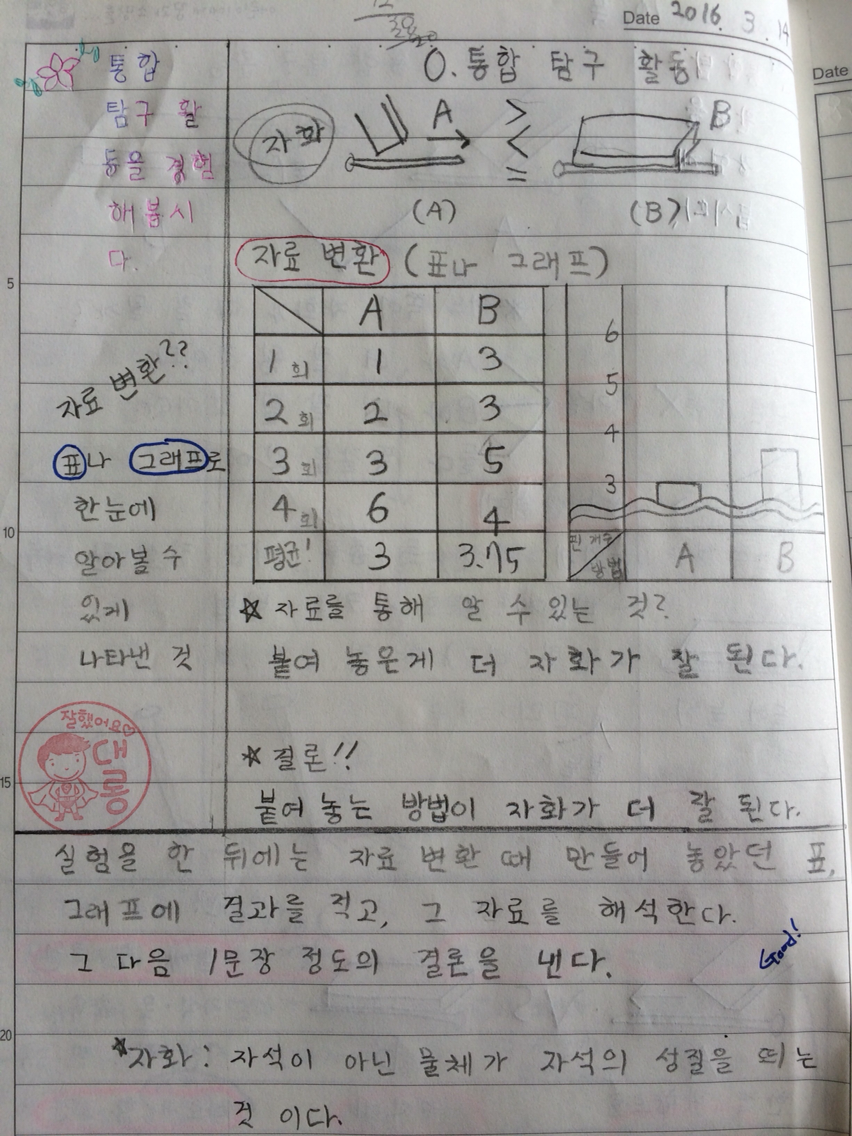 Date 2016. 3. 14
Date
통합
탐구 활
동을 경험
해 봅시
다.
0. 통합 탐구 활동
자화
A
>
<
=
B
(A)
(B)
자료 변환 (표나 그래프)
A B
1회 1 3
2회 2 3
3회 3 5
4회 6 4
평균! 3 3.75
6
5
4
3
핀 개수
방법
A
B
자료 변환??
표나 그래프로
한눈에
알아볼 수
있게
나타낸 것
☆ 자료를 통해 알 수 있는 것?
붙여 놓은게 더 자화가 잘 된다.
☆ 결론!!
붙여 놓는 방법이 자화가 더 잘 된다.
잘했어요♡
대롱
실험을 한 뒤에는 자료 변환 때 만들어 놓았던 표,
그래프에 결과를 적고, 그 자료를 해석한다.
그 다음 1문장 정도의 결론을 낸다.
Good!
☆자화 : 자석이 아닌 물체가 자석의 성질을 띄는
것 이다.
5
10
15
20